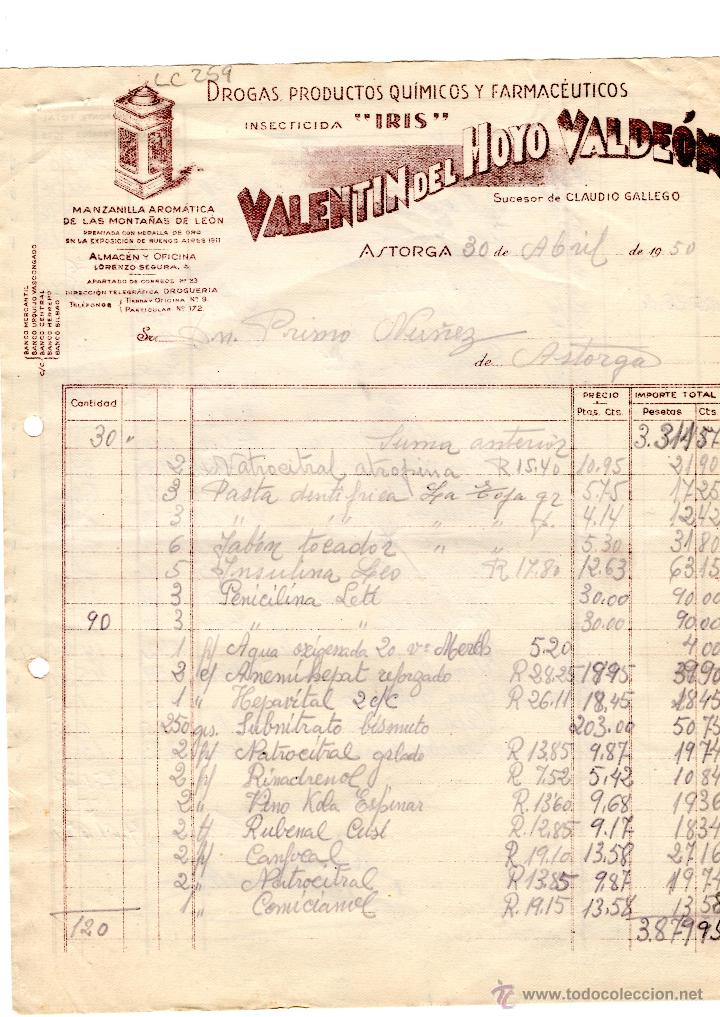 LC 259
DROGAS, PRODUCTOS QUÍMICOS Y FARMACÉUTICOS
INSECTICIDA "IRIS"
VALENTIN DEL HOYO VALDEÓN
Sucesor de CLAUDIO GALLEGO
MANZANILLA AROMÁTICA
DE LAS MONTAÑAS DE LEÓN
PREMIADA CON MEDALLA DE ORO
EN LA EXPOSICIÓN DE BUENOS AIRES 1911
ALMACÉN Y OFICINA
LORENZO SEGURA,
APARTADO DE CORREOS Nº 23
DIRECCIÓN TELEGRÁFICA DROGUERIA
TELÉFONOS TIENDA Y OFICINA Nº 9
PARTICULAR Nº 172
C/C BANCO MERCANTIL
BANCO URQUIJO VASCONGADO
BANCO CENTRAL
BANCO HERRERO
BANCO BILBAO
ASTORGA 30 de Abril de 1950
Sr. Dn. Primo Nuñez
de Astorga
Cantidad PRECIO IMPORTE TOTAL
Ptas. Cts. Pesetas Cts.
30 " Suma anterior 3.314 57
2 Natrocitral atropina R 15.40 10.95 21 90
3 Pasta dentifrica La Toja gr 5.75 17 25
3 " " " " 4.14 12 42
6 Jabón tocador " " 5.30 31 80
5 Insulina Leo R 17.80 12.63 63 15
3 Penicilina Lett 30.00 90 00
90 3 " " 30.00 90 00
1 f/ Agua oxigenada 20 v. Merck 5.20 4 00
2 c/ Anemi-hepat reforzado R 28.25 19.95 39 90
1 " Hepavital 2 c/c R 26.11 18,45 18 45
250 grs. Subnitrato bismuto 203.00 50 75
2 f/ Natrocitral gelado R 13,85 9.87 19 74
2 f/ Rinadrenol R 7.52 5.42 10 84
2 " Vino Kola Espinar R. 13'60 9,68 19 36
2 t/ Rubenal Cusi R. 12,85 9.17 18 34
2 f/ Canfocal R 19.10 13.58 27 16
2 " Natrocitral R 13.85 9.87 19 74
1 " R. 19.15 13.58 13 58
120 3.879 95
www.todocoleccion.net